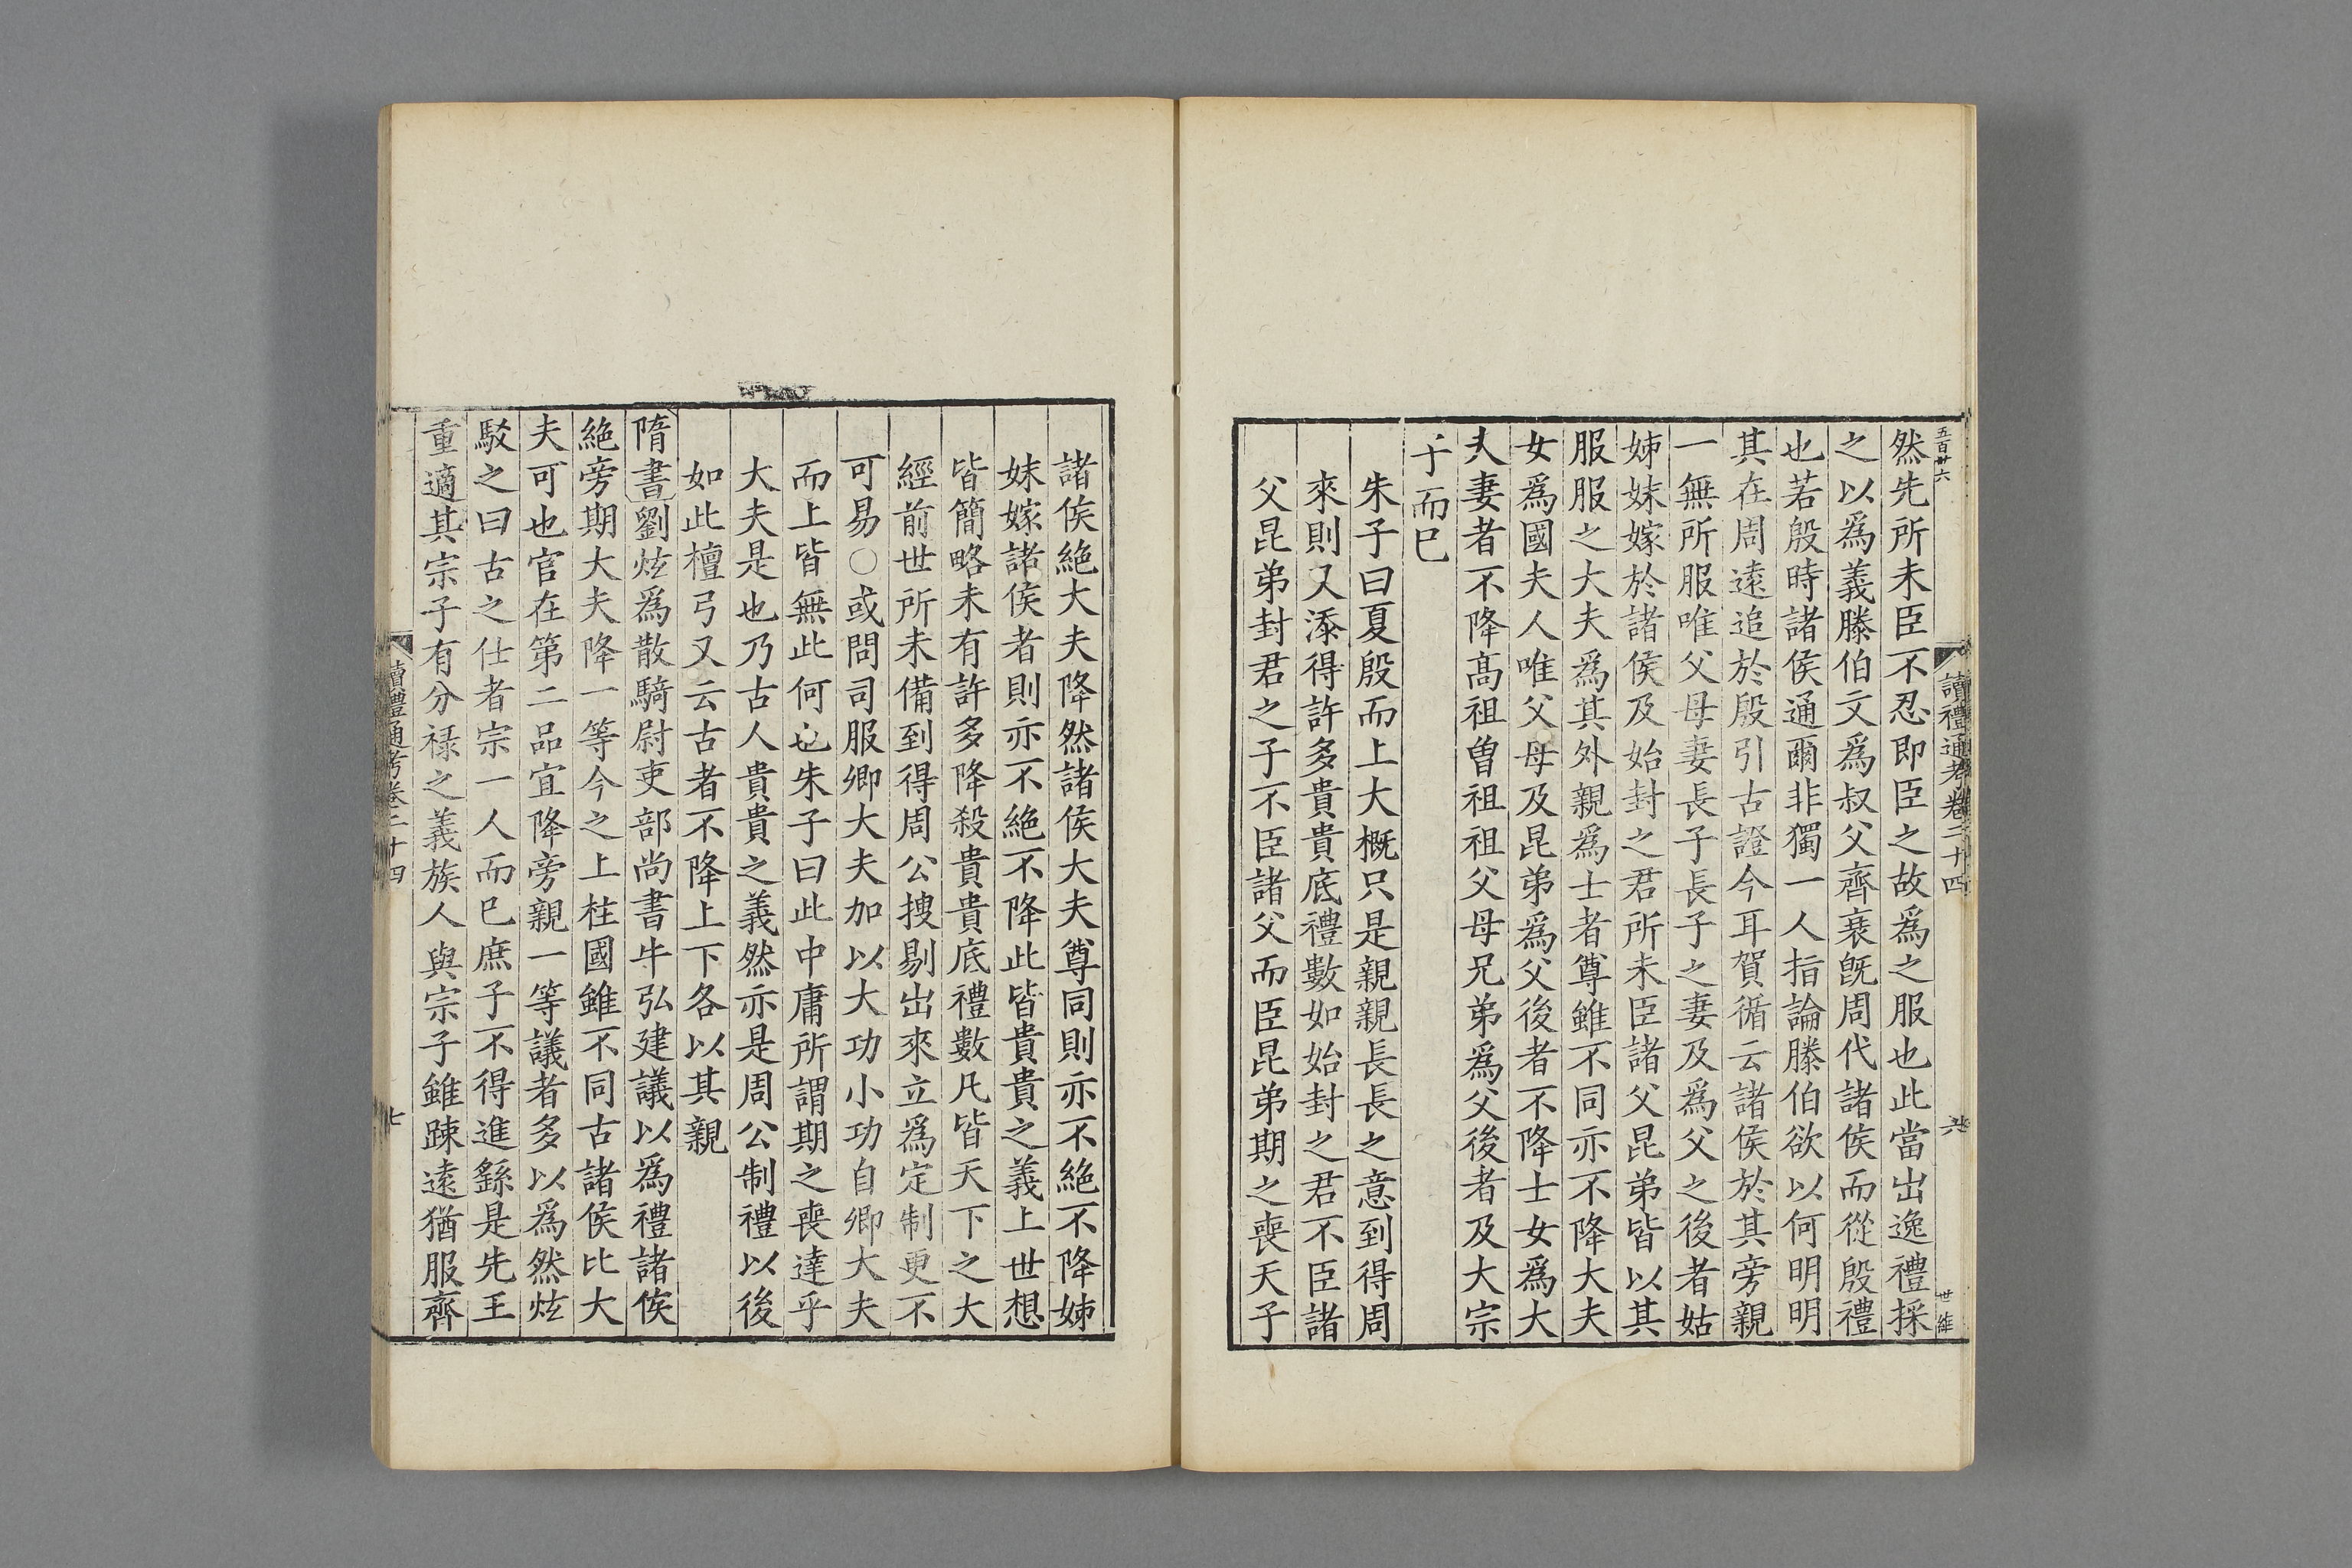 五百卅六
讀禮通考卷二十四
六
世維
然先所未臣不忍即臣之故爲之服也此當出逸禮採
之以爲義滕伯文爲叔父齊衰旣周代諸侯而從殷禮
也若殷時諸侯通爾非獨一人指論滕伯欲以何明明
其在周遠追於殷引古證今耳賀循云諸侯於其旁親
一無所服唯父母妻長子長子之妻及爲父之後者姑
姊妹嫁於諸侯及始封之君所未臣諸父昆弟皆以其
服服之大夫爲其外親爲士者尊雖不同亦不降大夫
女爲國夫人唯父母及昆弟爲父後者不降士女爲大
夫妻者不降高祖曾祖祖父母兄弟爲父後者及大宗
子而已
朱子曰夏殷而上大概只是親親長長之意到得周
來則又添得許多貴貴底禮數如始封之君不臣諸
父昆弟封君之子不臣諸父而臣昆弟期之喪天子
諸侯絶大夫降然諸侯大夫尊同則亦不絶不降姊
妹嫁諸侯者則亦不絶不降此皆貴貴之義上世想
皆簡略未有許多降殺貴貴底禮數凡皆天下之大
經前世所未備到得周公搜剔出來立爲定制更不
可易○或問司服卿大夫加以大功小功自卿大夫
而上皆無此何也朱子曰此中庸所謂期之喪達乎
大夫是也乃古人貴貴之義然亦是周公制禮以後
如此檀弓又云古者不降上下各以其親
隋書劉炫爲散騎尉吏部尚書牛弘建議以爲禮諸侯
絶旁期大夫降一等今之上柱國雖不同古諸侯比大
夫可也官在第二品宜降旁親一等議者多以爲然炫
駁之曰古之仕者宗一人而已庶子不得進繇是先王
重適其宗子有分祿之義族人與宗子雖踈遠猶服齊
讀禮通考卷二十四
七